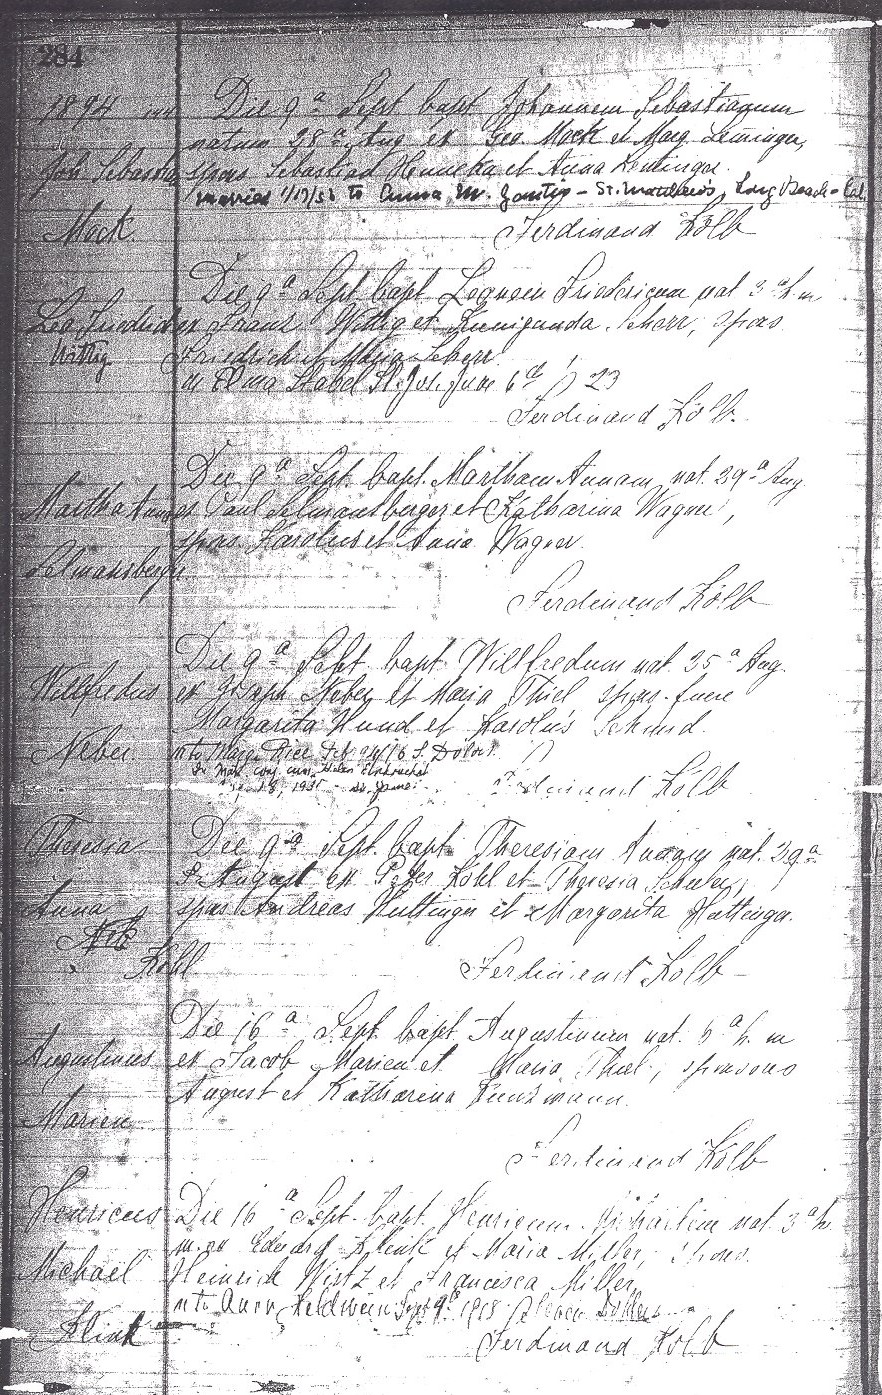 284
1894
Die 9a Sept bapt Johannem Sebastianum
natum 28a Aug ex Geo. Mock et Marg.
Joh. Sebastian
spons Sebastian et Anna
married 1/17/53 to Anna M. - St. Matthew's, Long Beach - Cal.
Mock
Ferdinand Kolb
Die 9a Sept bapt Leonem Friedericum nat 3a h. m
Leo Friedrich
ex Franz Wittig et Kunigunda Scherr, spons
Wittig
Friedrich et Maria Scherr
m Elma Stabel St. Jos. June 6th 23
Ferdinand Kolb.
Die 9a Sept. bapt. Martham Annam nat. 29a Aug
Martha Anna
ex Paul Selmansberger et Katharina Wagner,
spons. Karolus et Anna Wagner.
Selmansberger
Ferdinand Kolb
Die 9a Sept. bapt Willfredum nat. 25a Aug.
Willfredus
ex Joseph Neber et Maria Thiel spons. fuere
Margarita Hund et Karolus Schmid.
Neber
m to Marg. Rice Feb 16 S. Dolor.
Helen
18, 1935 - St. Jane
Ferdinand Kolb
Theresia
Die 9a Sept. bapt Theresiam Annam nat. 29a
August ex Peter Kohl et Theresia
Anna
spons Andreas Huttinger et Margarita Huttinger.
Kohl
Ferdinand Kolb
Die 16a Sept. bapt. Augustinum nat. 6a h. m
Augustinus
ex Jacob Marien et Maria Thiel, sponsons
August et Katharina
Marien
Ferdinand Kolb
Henricus
Die 16a Sept. bapt. Henricum Michaelem nat. 3a h.
m. ex Edward Klink et Maria Miller, spons.
Michael
Heinrich Wirtz et Francesca Miller
m to Ann Feldwein Sept 9th 1918 Seven Dollers
Klink
Ferdinand Kolb